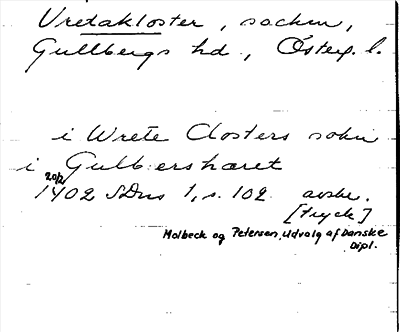 Vretakloster, socken,
Gullbergs hd, Österg. l.
i Wrete Closters sokn
i Gulbershæret
20/2
1402 SDns 1, s. 102 avskr.
[tryck]
Molbeck og Petersen, Udvalg af Danske
Dipl.